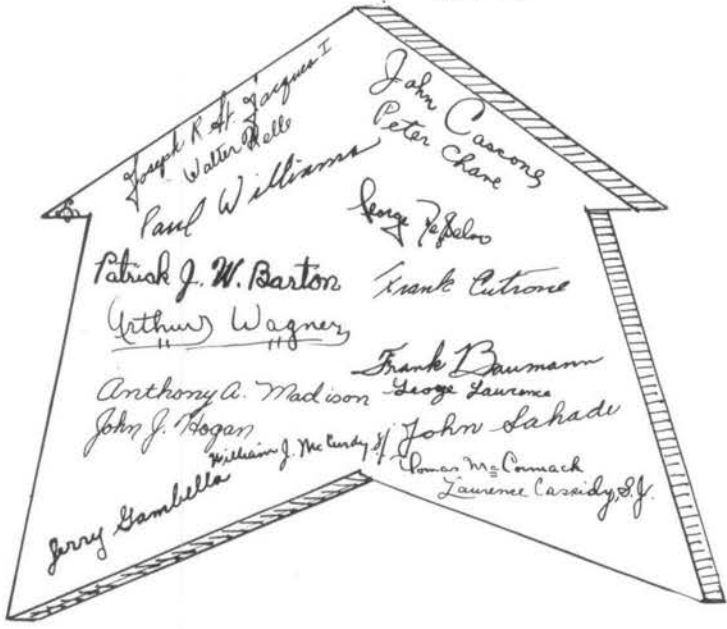 Joseph R. St. Jacques I
Walter Kelle
Paul Williams
Patrick J. W. Barton
Arthur Wagner
Anthony A. Madison
John J. Hogan
William J. McCurdy SJ
Jerry Gambella
John Cascone
Peter Chave
George
Frank Cutrone
Frank Baumann
George Laurence
John Sahade
Thomas McCormack
Laurence Cassidy, S.J.